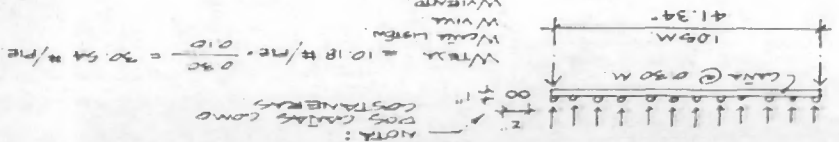 NOTA:
DOS CAÑAS COMO
COSTANERAS
2"
1"
CAÑA @ 0.30 M
1.05 M
41.34"
WTEJA = 10.18 #/PIE · 0.30 / 0.10 = 30.54 #/PIE
WCAÑA LISTON
WVIVA
WVIENTO